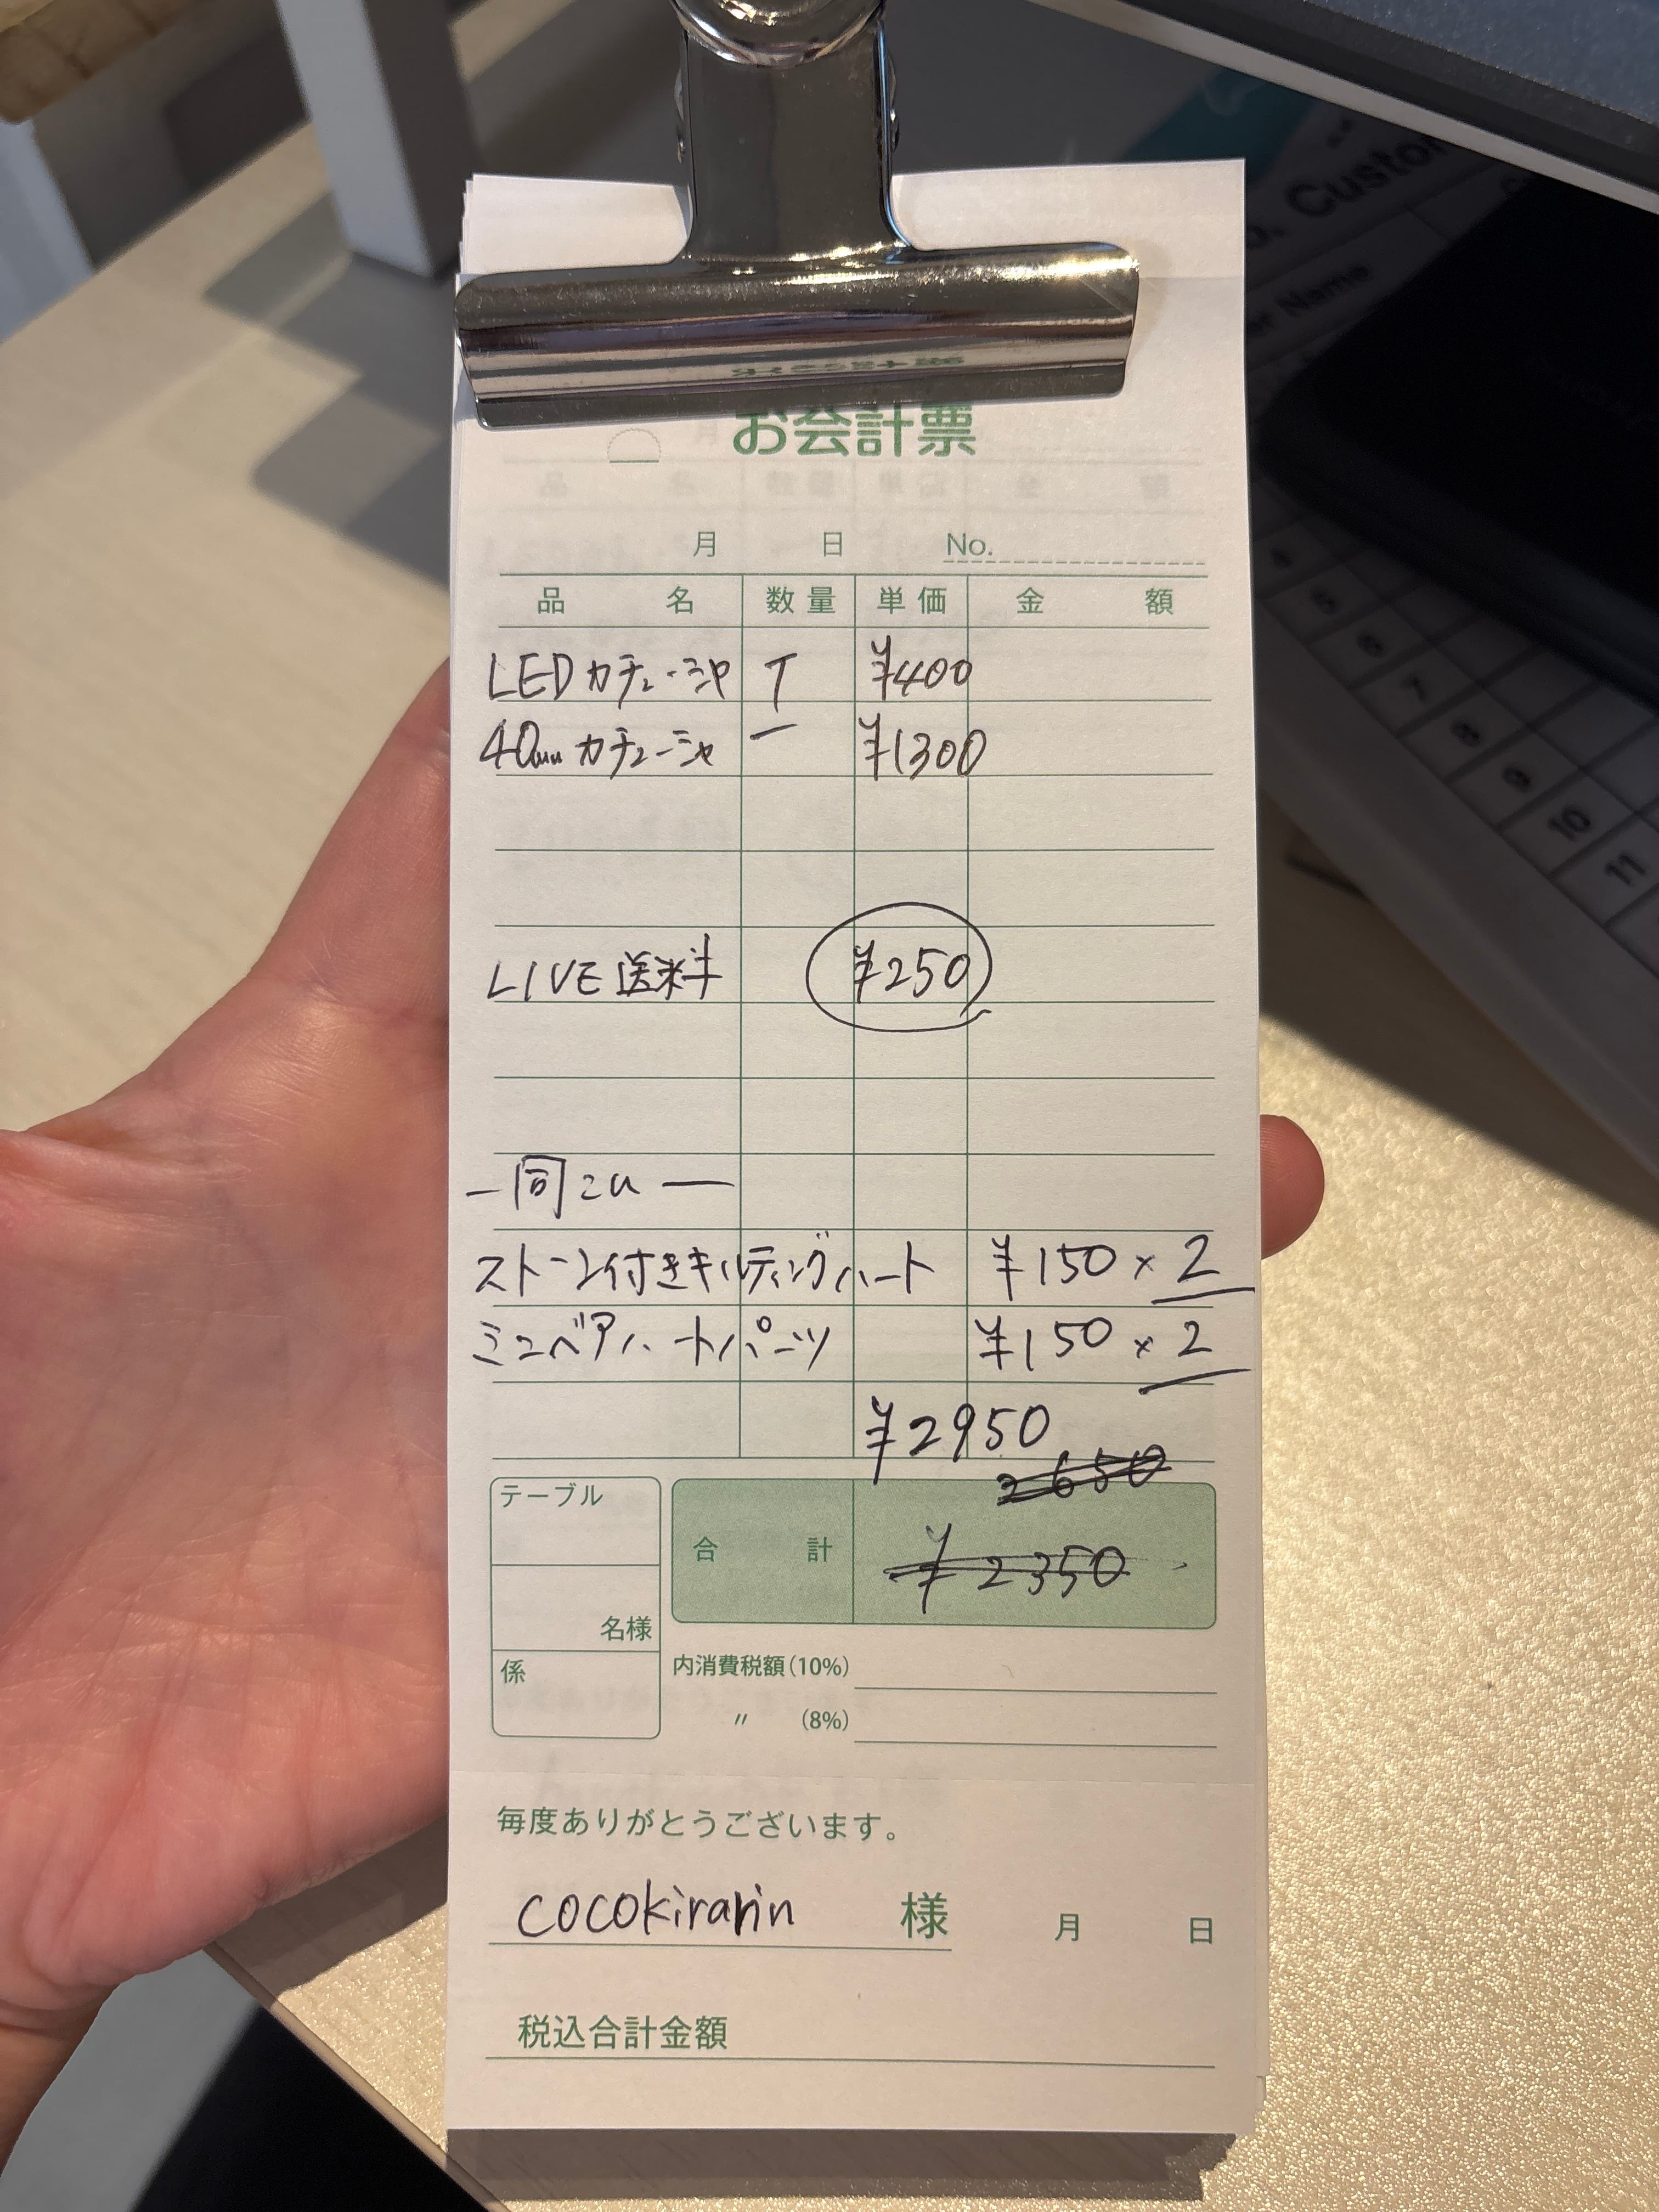 お会計票
月 日 No.
品名 数量 単価 金額
LEDカチューシャ T ¥400
40mmカチューシャ 一 ¥1300
LIVE送料 ¥250
ー同こんー
ストーン付きキルティングハート ¥150×2
ミニベアハートパーツ ¥150×2
¥2950
2650
テーブル
合計 ¥2350
名様
係
内消費税額(10%)
〃 (8%)
毎度ありがとうございます。
cocokirarin 様 月 日
税込合計金額
, Custom
er Name
5
6
7
8
9
10
11